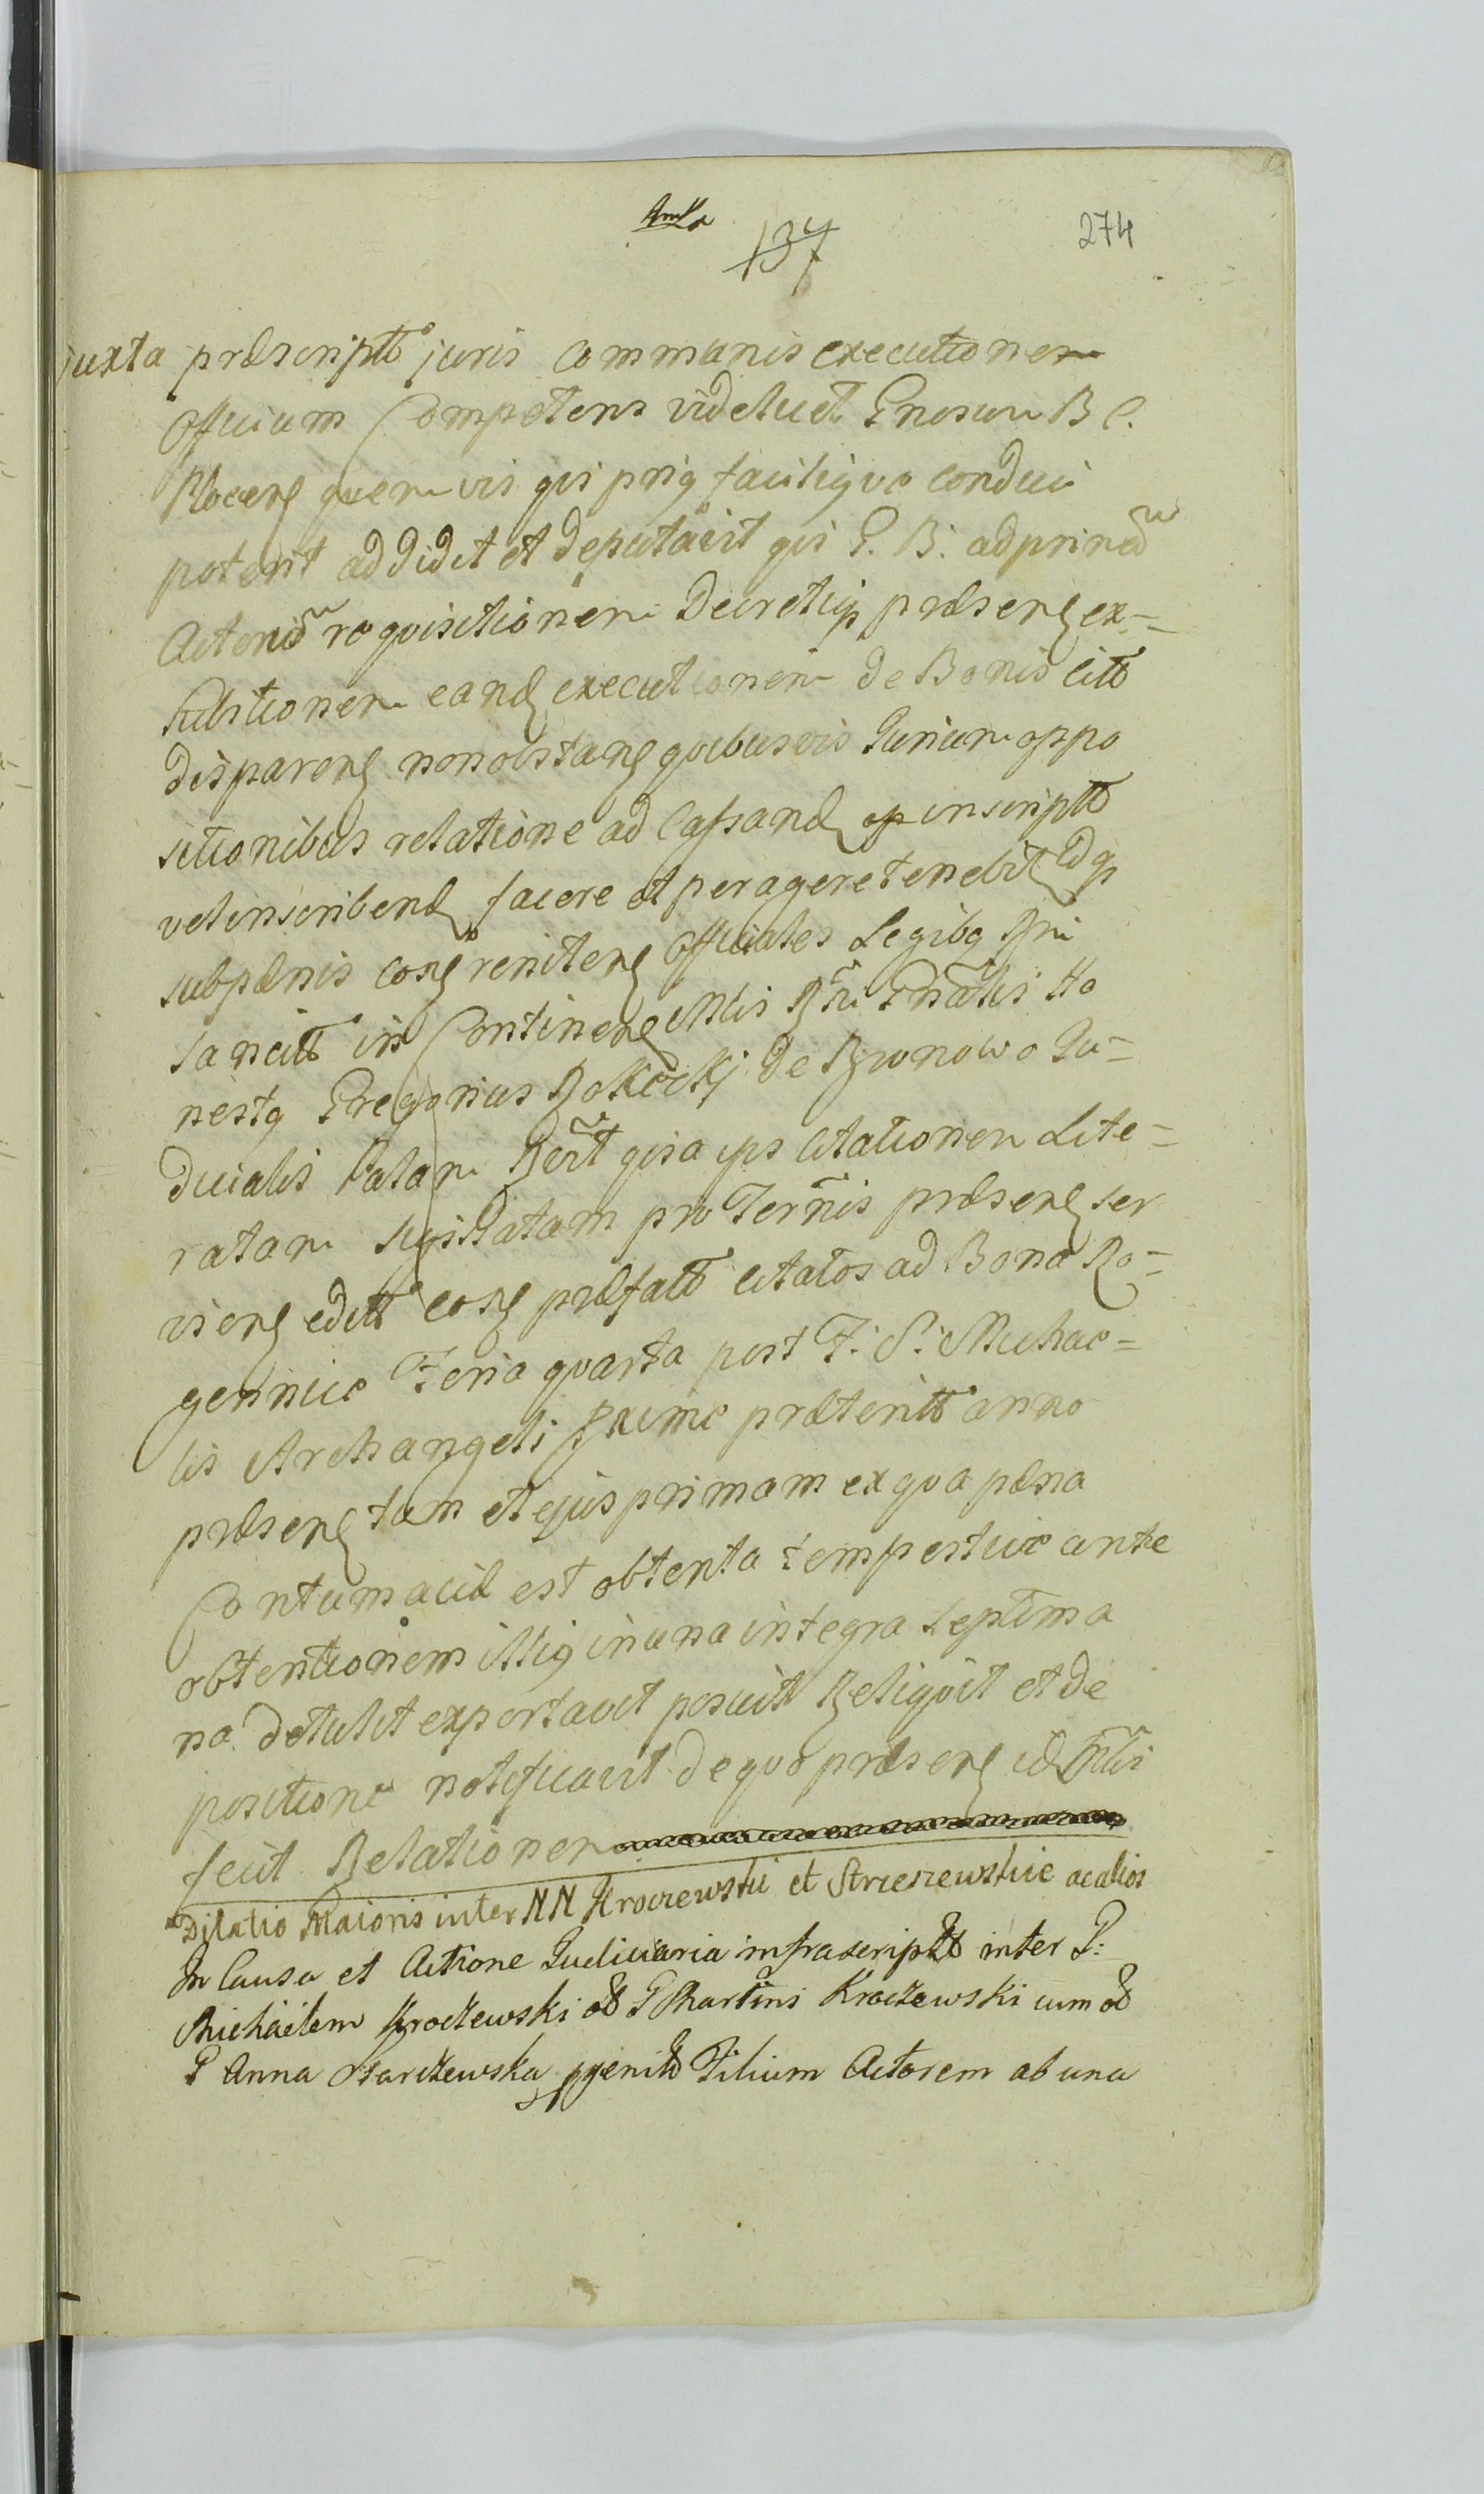 137
274
juxta præscriptt juris Communis executionem
Officium Competens videlicet Gnosum B C.
Plocen quemvis qui priq faciliqve conduci
poterit addidit et deputavit qui G. B. ad primã
Actoreã requisitionem Decretiqs præsen ex-
hibitionem eand executionem de Bonis citt
disparen nonobstan quibusvis Jurium oppo
sitionibus relatione ad Cassand inscriptt
vel inscribend facere et peragere tenebit Idq
subpænis con reniten Officiales Legibq Rni
sancitt in Continen Mis Rñi Gñalis Ho
nestq Gregorius Rokicki de Bronowo Ju=
dicialis Palam Reĩt qisa ips Citationem Lite=
ratam sigillatam pro Terñis præsen ser
vien editt con præfatt citatos ad Bona Ro=
gennice Feria quarta post F: S: Michae=
lis Archangeli proxime præteritt anno
præsen tam et ejus primam ex qva pæna
Contumaciæ est obtenta tempestive ante
obtentionem illiq in una integra septima
na detulit exportavit posuit Reliqvit et de
positione notificavit de qvo præsen
fecit Relationem
Dilatio Maioris inter NN Kroczewski et Strzeszewskie ac alios
In Causa et Actione Judiciaria infrascriptt inter G:
Michaelem Kroczewski olt G Martini Kroczewski cum olt
G Anna Garczewska pgenitt Filium Actorem ab una